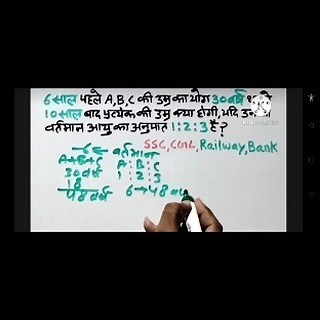 6 साल पहले A,B,C की उम्र का योग 30 वर्ष
10 साल बाद प्रत्येक की उम्र क्या होगी, यदि
वर्तमान आयु का अनुपात 1:2:3 है?
SSC, CGL, Railway, Bank
-6 ← वर्तमान
A+B+C A : B : C
30 वर्ष 1 : 2 : 3
18
48 वर्ष 6→48 व